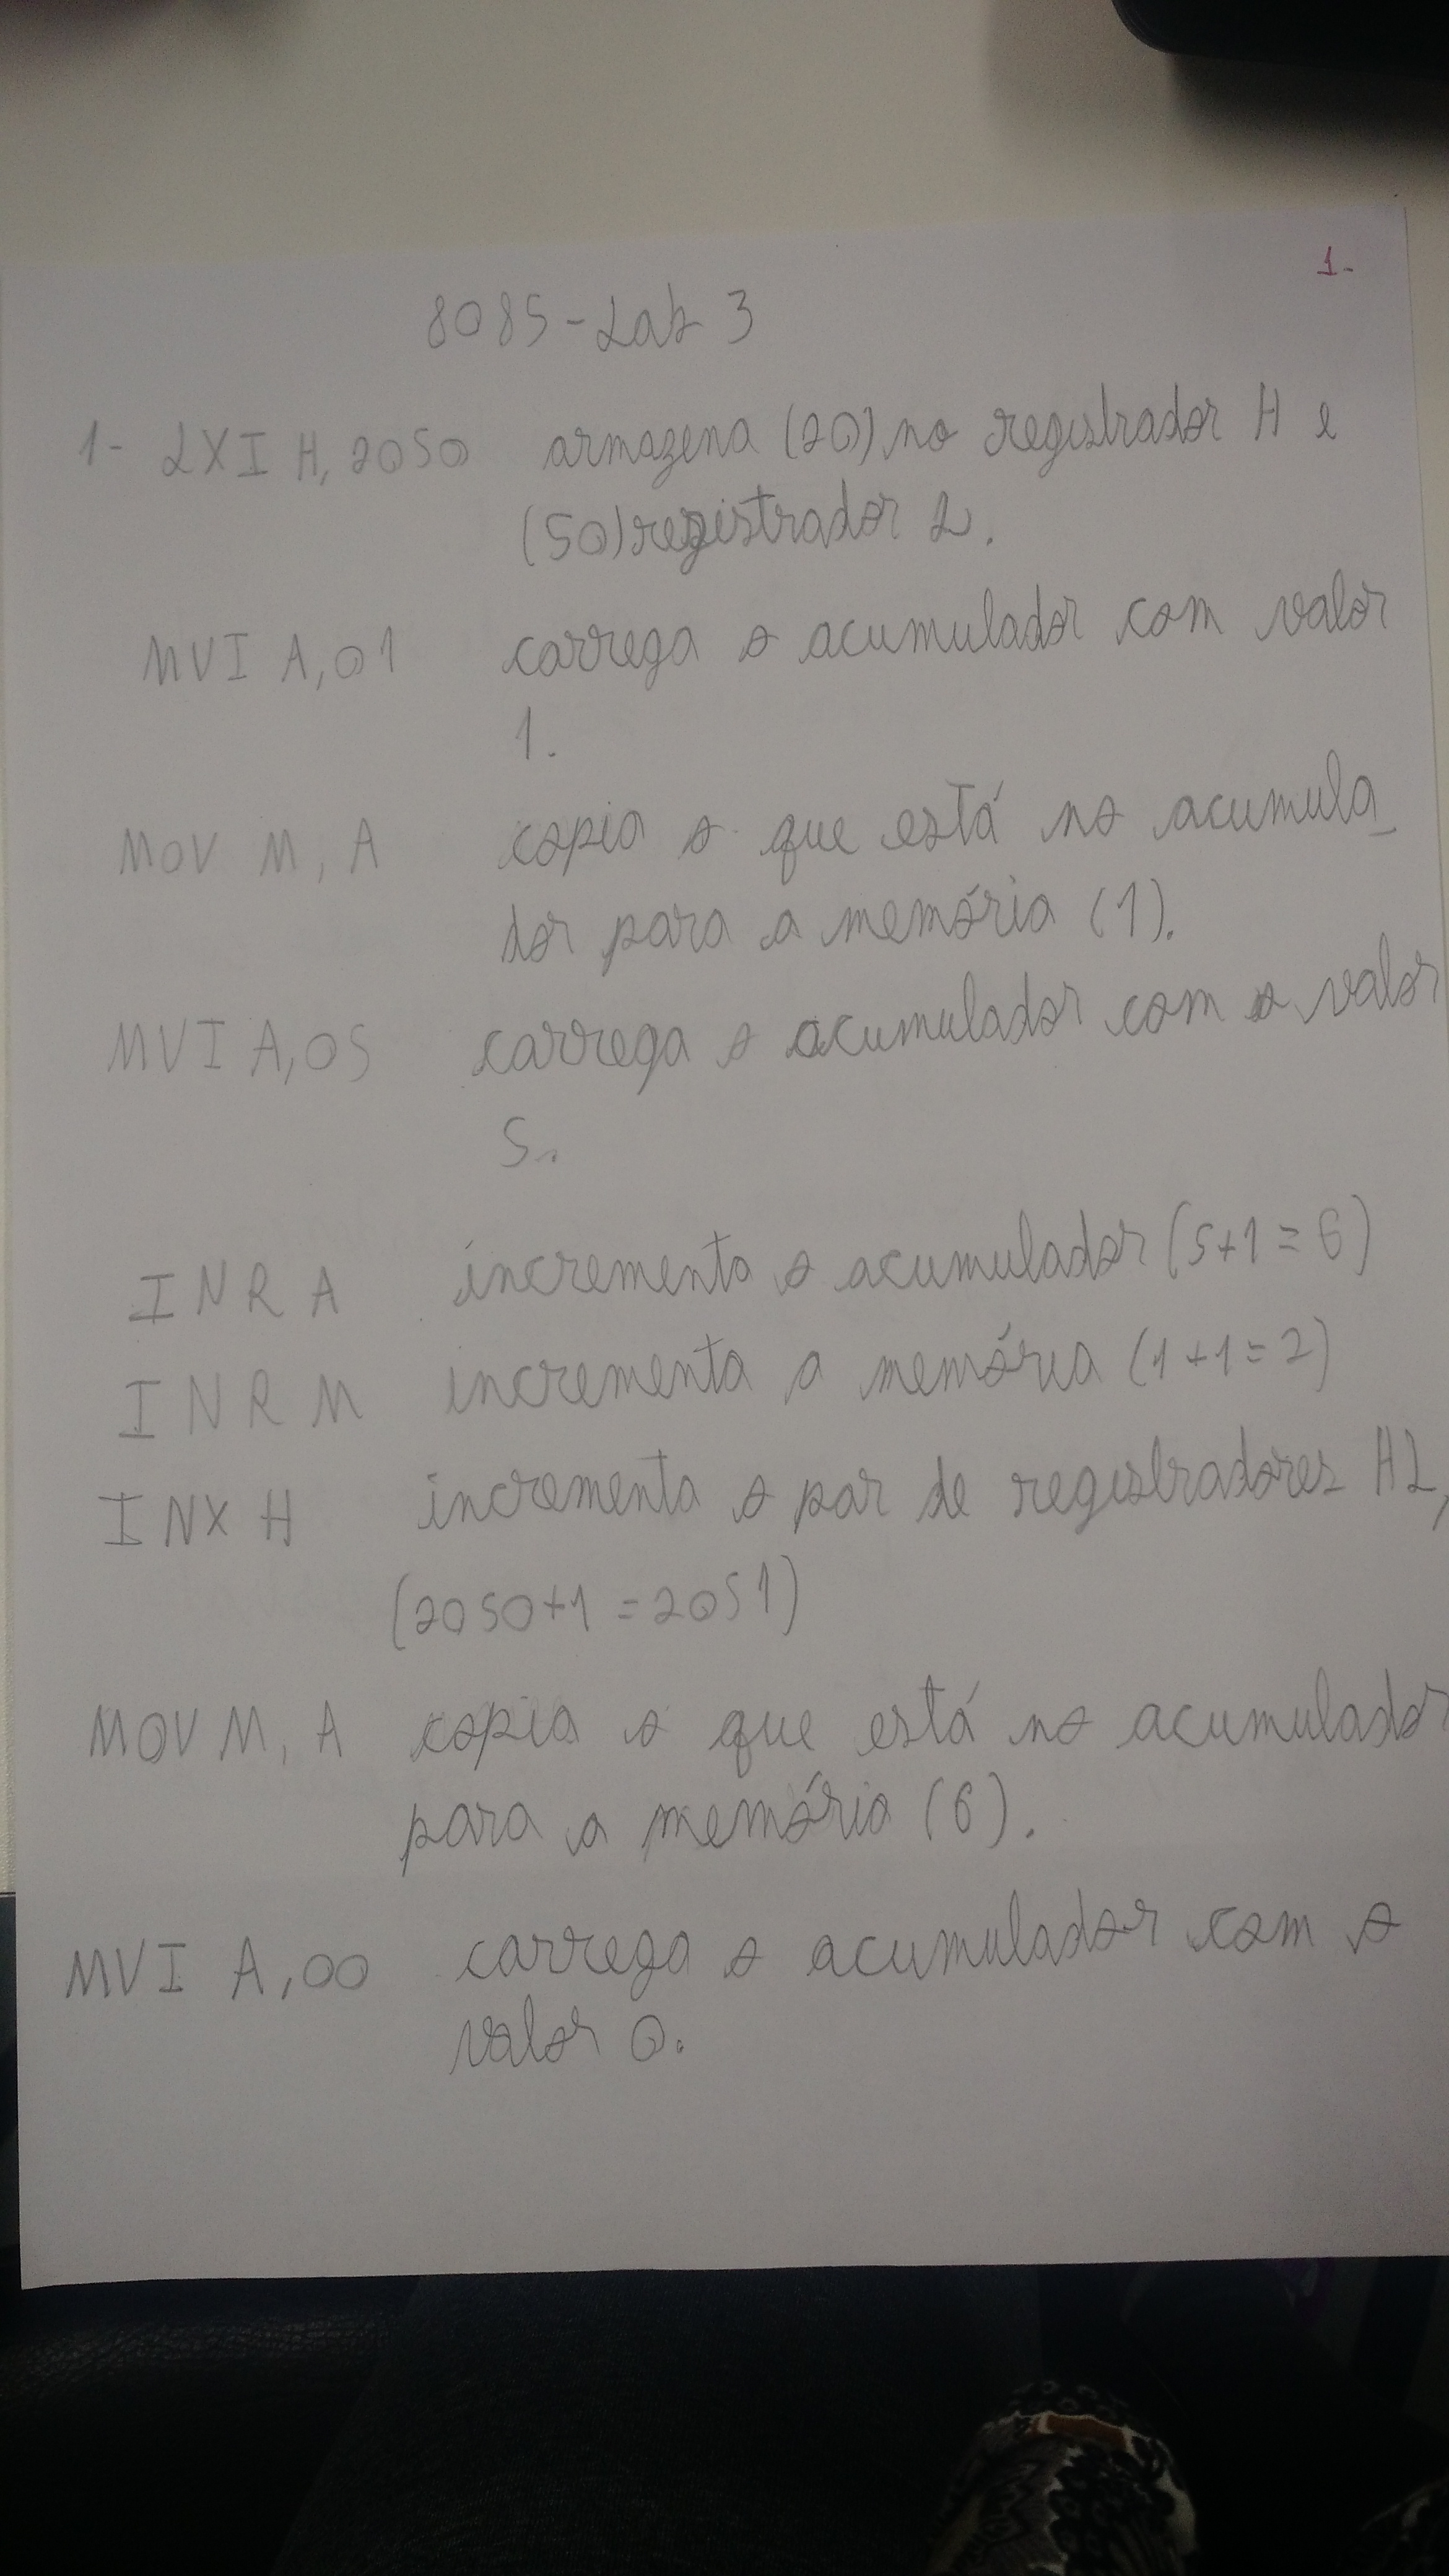 1-
8085-Lab 3
1- LXI H, 2050 armazena (20) no registrador H e
(50) registrador L.
MVI A, 01 carrega o acumulador com valor
1.
MOV M, A copia o que está no acumula_
dor para a memória (1).
MVI A, 05 carrega o acumulador com o valor
5.
INR A incrementa o acumulador (5+1=6)
INR M incrementa a memória (1+1=2)
INX H incrementa o par de registradores HL,
(2050+1=2051)
MOV M, A copia o que está no acumulador
para a memória (6).
MVI A, 00 carrega o acumulador com o
valor 0.